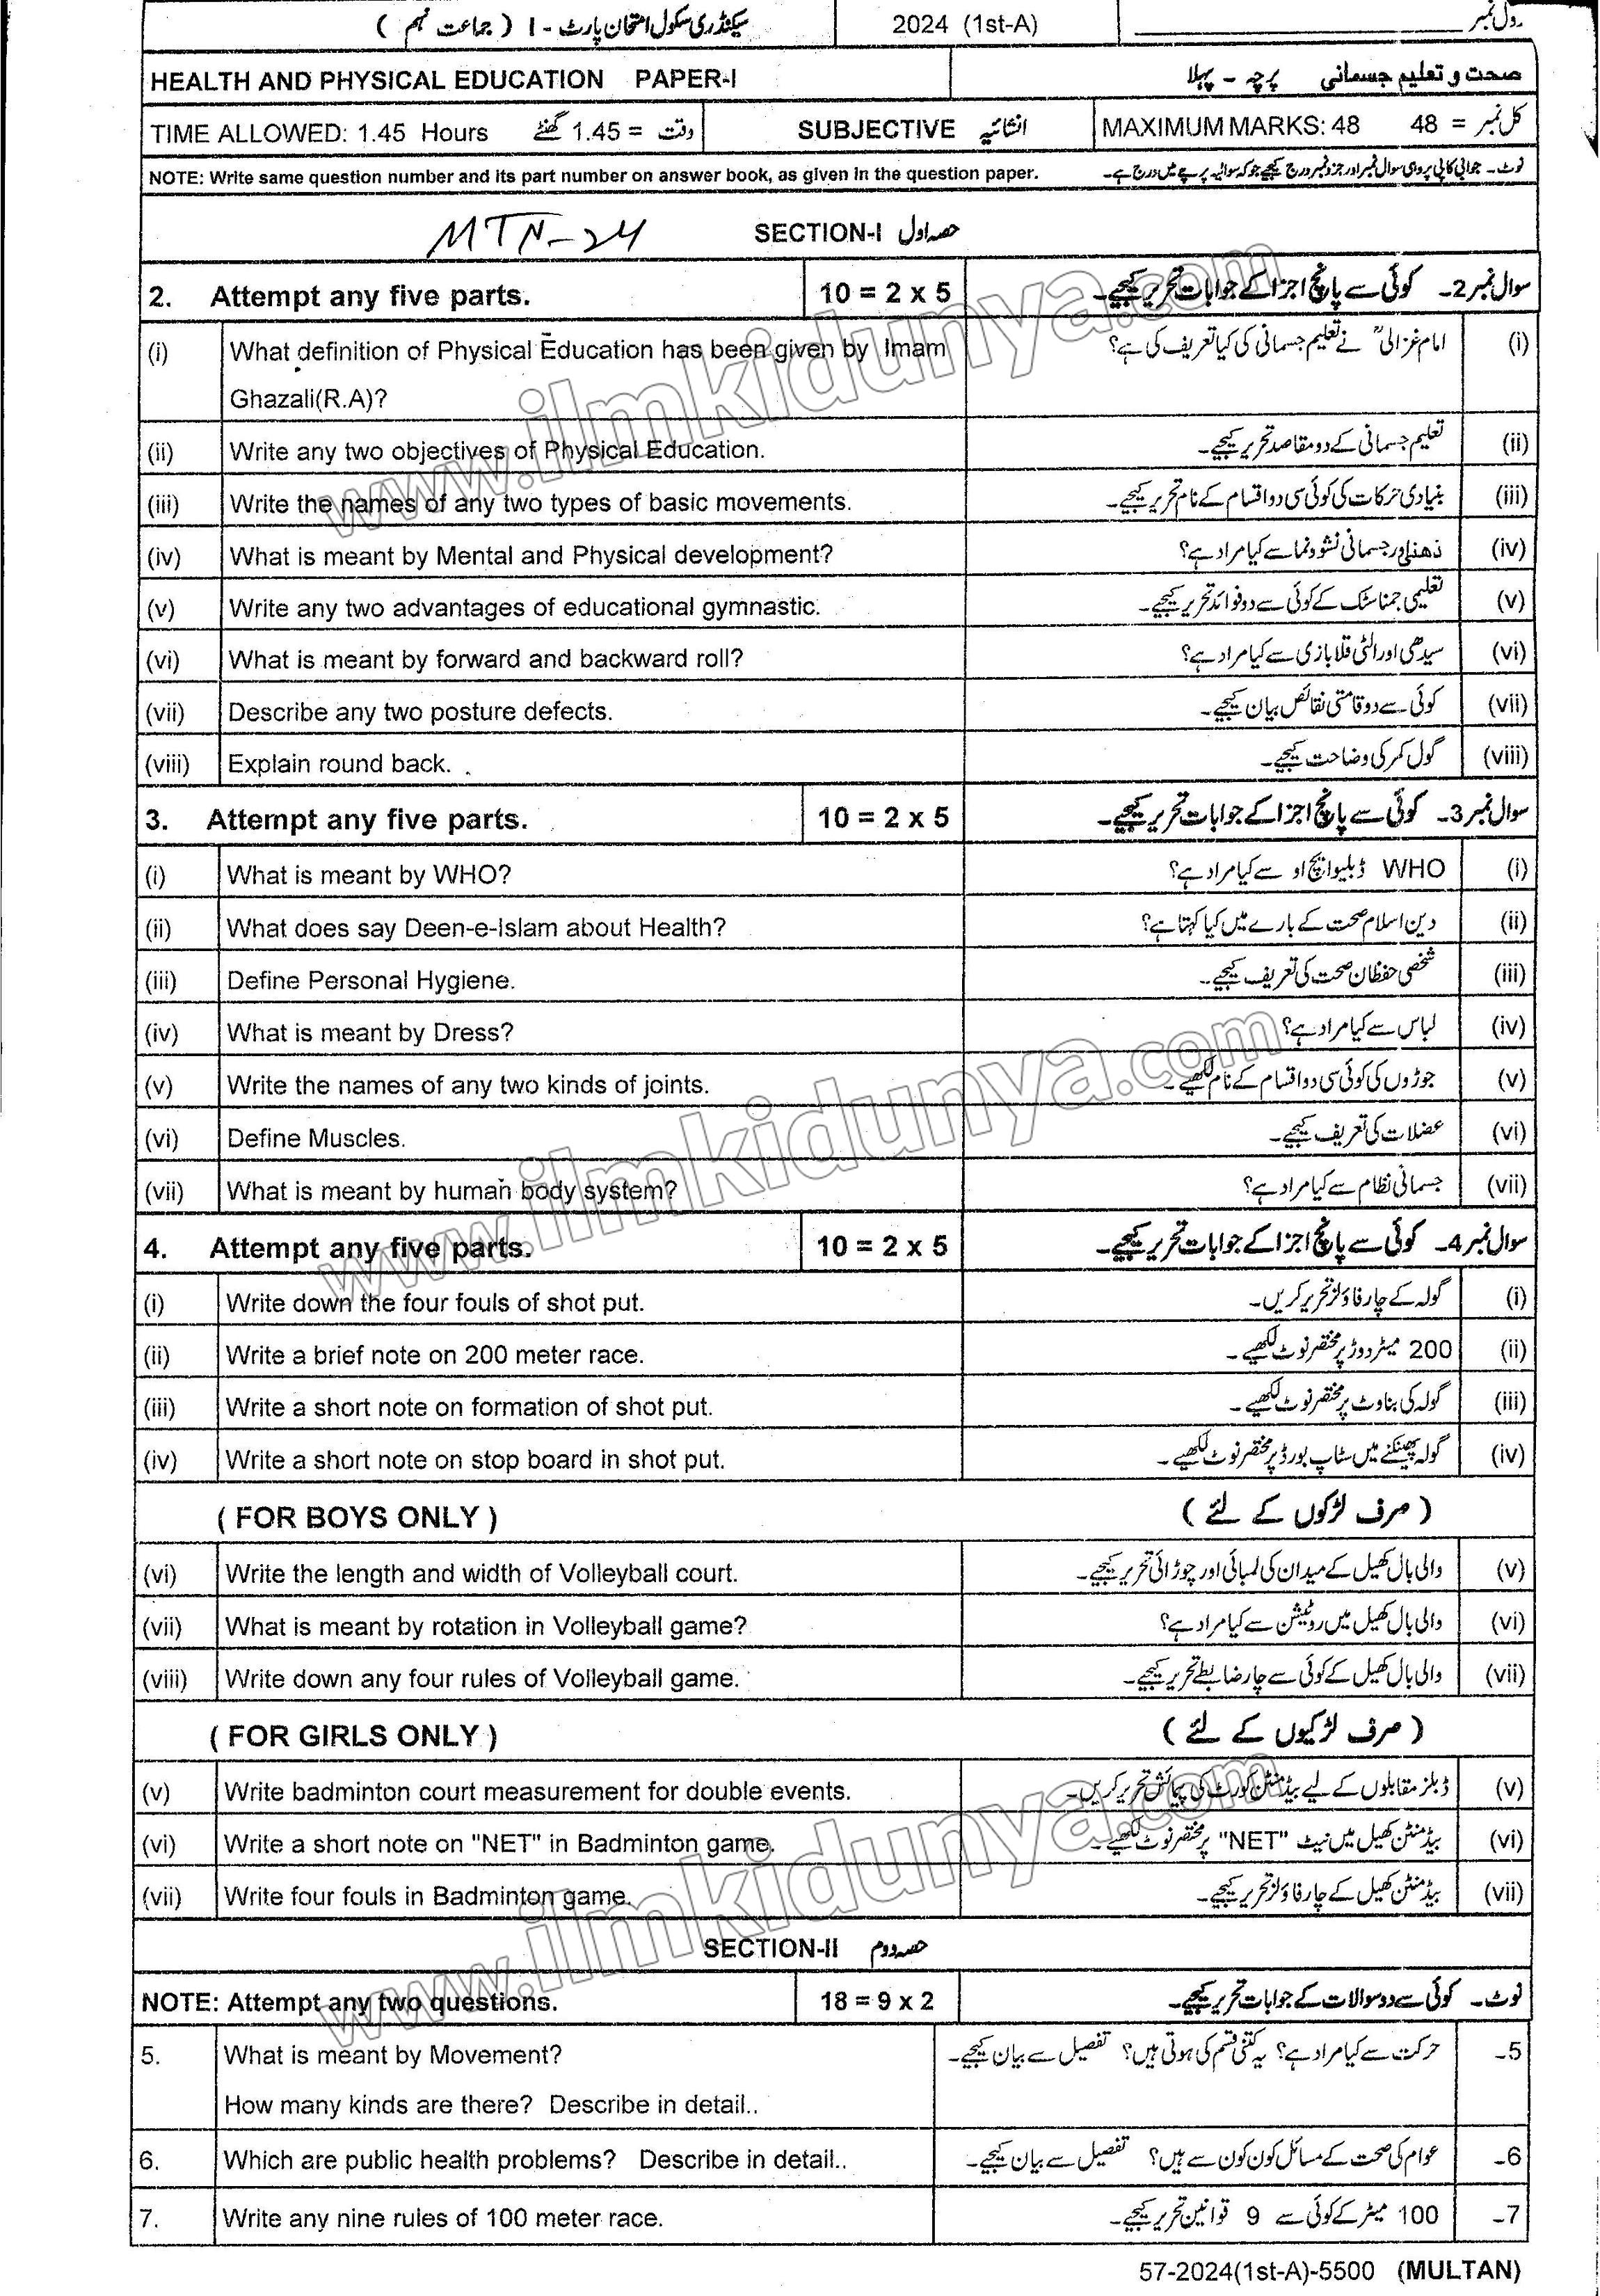 سیکنڈری سکول امتحان پارٹ - I ( جماعت نہم )
2024 (1st-A)
رول نمبر
HEALTH AND PHYSICAL EDUCATION PAPER-I
صحت و تعلیم جسمانی پرچہ - پہلا
TIME ALLOWED: 1.45 Hours وقت = 1.45 گھنٹے
SUBJECTIVE انشائیہ
MAXIMUM MARKS: 48 کل نمبر = 48
NOTE: Write same question number and its part number on answer book, as given in the question paper.
نوٹ۔ جوابی کاپی پر وہی سوال نمبر اور جزو نمبر درج کیجیے جو کہ سوالیہ پرچے میں درج ہے۔
MTN-24
SECTION-I حصہ اول
2. Attempt any five parts. 10 = 2 x 5 سوال نمبر 2۔ کوئی سے پانچ اجزا کے جوابات تحریر کیجیے۔
(i) What definition of Physical Education has been given by Imam امام غزالیؒ نے تعلیم جسمانی کی کیا تعریف کی ہے؟ (i)
Ghazali(R.A)?
(ii) Write any two objectives of Physical Education. تعلیم جسمانی کے دو مقاصد تحریر کیجیے۔ (ii)
(iii) Write the names of any two types of basic movements. بنیادی حرکات کی کوئی سی دو اقسام کے نام تحریر کیجیے۔ (iii)
(iv) What is meant by Mental and Physical development? ذہنی اور جسمانی نشوونما سے کیا مراد ہے؟ (iv)
(v) Write any two advantages of educational gymnastic. تعلیمی جمناسٹک کے کوئی سے دو فوائد تحریر کیجیے۔ (v)
(vi) What is meant by forward and backward roll? سیدھی اور الٹی قلابازی سے کیا مراد ہے؟ (vi)
(vii) Describe any two posture defects. کوئی سے دو قامتی نقائص بیان کیجیے۔ (vii)
(viii) Explain round back. گول کمر کی وضاحت کیجیے۔ (viii)
3. Attempt any five parts. 10 = 2 x 5 سوال نمبر 3۔ کوئی سے پانچ اجزا کے جوابات تحریر کیجیے۔
(i) What is meant by WHO? WHO ڈبلیو ایچ او سے کیا مراد ہے؟ (i)
(ii) What does say Deen-e-Islam about Health? دین اسلام صحت کے بارے میں کیا کہتا ہے؟ (ii)
(iii) Define Personal Hygiene. شخصی حفظان صحت کی تعریف کیجیے۔ (iii)
(iv) What is meant by Dress? لباس سے کیا مراد ہے؟ (iv)
(v) Write the names of any two kinds of joints. جوڑوں کی کوئی سی دو اقسام کے نام لکھیے۔ (v)
(vi) Define Muscles. عضلات کی تعریف کیجیے۔ (vi)
(vii) What is meant by human body system? جسمانی نظام سے کیا مراد ہے؟ (vii)
4. Attempt any five parts. 10 = 2 x 5 سوال نمبر 4۔ کوئی سے پانچ اجزا کے جوابات تحریر کیجیے۔
(i) Write down the four fouls of shot put. گولہ کے چار فاؤلز تحریر کریں۔ (i)
(ii) Write a brief note on 200 meter race. 200 میٹر دوڑ پر مختصر نوٹ لکھیے۔ (ii)
(iii) Write a short note on formation of shot put. گولہ کی بناوٹ پر مختصر نوٹ لکھیے۔ (iii)
(iv) Write a short note on stop board in shot put. گولہ پھینکنے میں سٹاپ بورڈ پر مختصر نوٹ لکھیے۔ (iv)
( FOR BOYS ONLY ) ( صرف لڑکوں کے لئے )
(vi) Write the length and width of Volleyball court. والی بال کھیل کے میدان کی لمبائی اور چوڑائی تحریر کیجیے۔ (v)
(vii) What is meant by rotation in Volleyball game? والی بال کھیل میں روٹیشن سے کیا مراد ہے؟ (vi)
(viii) Write down any four rules of Volleyball game. والی بال کھیل کے کوئی سے چار ضابطے تحریر کیجیے۔ (vii)
( FOR GIRLS ONLY ) ( صرف لڑکیوں کے لئے )
(v) Write badminton court measurement for double events. ڈبلز مقابلوں کے لیے بیڈمنٹن کورٹ کی پیمائش تحریر کریں۔ (v)
(vi) Write a short note on "NET" in Badminton game. بیڈمنٹن کھیل میں نیٹ "NET" پر مختصر نوٹ لکھیے۔ (vi)
(vii) Write four fouls in Badminton game. بیڈمنٹن کھیل کے چار فاؤلز تحریر کیجیے۔ (vii)
SECTION-II حصہ دوم
NOTE: Attempt any two questions. 18 = 9 x 2 نوٹ۔ کوئی سے دو سوالات کے جوابات تحریر کیجیے۔
5. What is meant by Movement? حرکت سے کیا مراد ہے؟ یہ کتنی قسم کی ہوتی ہیں؟ تفصیل سے بیان کیجیے۔ 5۔
How many kinds are there? Describe in detail..
6. Which are public health problems? Describe in detail.. عوام کی صحت کے مسائل کون کون سے ہیں؟ تفصیل سے بیان کیجیے۔ 6۔
7. Write any nine rules of 100 meter race. 100 میٹر کے کوئی سے 9 قوانین تحریر کیجیے۔ 7۔
57-2024(1st-A)-5500 (MULTAN)
www.ilmkidunya.com
www.ilmkidunya.com
www.ilmkidunya.com